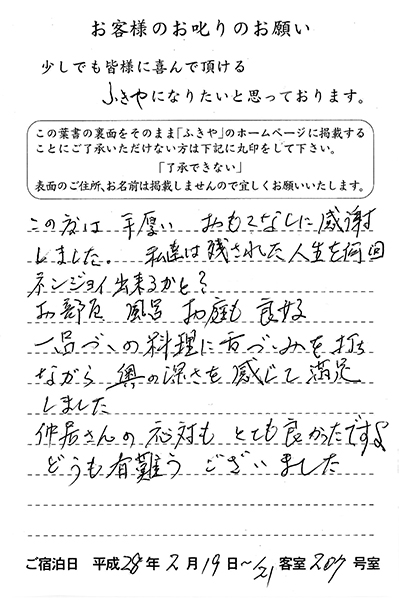 お客様のお叱りのお願い
少しでも皆様に喜んで頂ける
ふきやになりたいと思っております。
この葉書の裏面をそのまま「ふきや」のホームページに掲載する
ことにご了承いただけない方は下記に丸印をして下さい。
「了承できない」
表面のご住所、お名前は掲載しませんので宜しくお願いいたします。
この度は 手厚い おもてなしに感謝
しました。 私達は残された人生を何回
エンジョイ出来るかと?
お部屋 風呂 お庭も 良好
一品づつの料理に舌づつみを打ち
ながら 奥の深さを感じて満足
しました
仲居さんの応対も とても良かったですよ
どうも有難う ございました
ご宿泊日 平成28年2月19日〜21 客室207号室